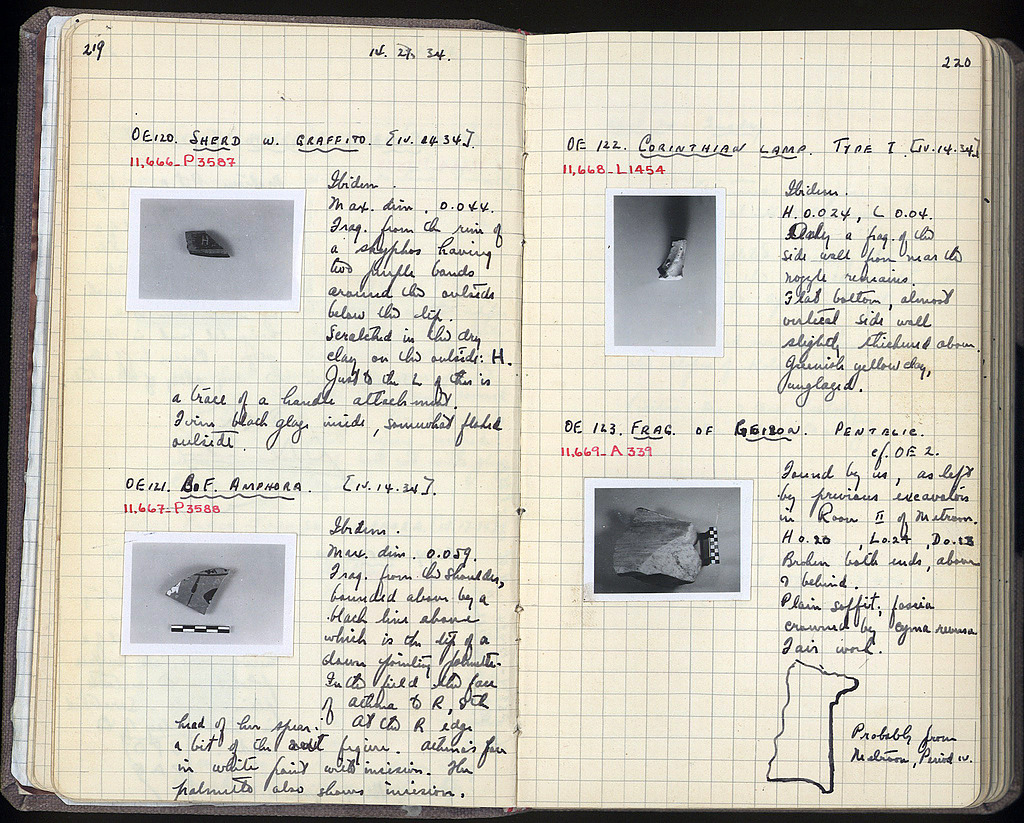 219
14. 24. 34.
OE120. SHERD W. GRAFFITO. [IV.14.34].
11,666-P3587
Ibidem.
Max. dim. 0.044.
Frag. from the rim of
a skyphos having
two purple bands
around the outside
below the lip.
Scratched in the dry
clay on the outside: H.
Just to the L of this is
a trace of a handle attachment.
Firm black glaze inside, somewhat flaked
outside.
OE121. B.F. AMPHORA. [IV.14.34].
11,667-P3588
Ibidem.
Max. dim. 0.059.
Frag. from the shoulder,
bounded above by a
black line above
which is the tip of a
down pointing palmette.
In the field the face
of Athena to R, &
head of her spear. At the R edge
a bit of the next figure. Athena's face
in white paint with incision. The
palmette also shows incision.
220
OE 122. CORINTHIAN LAMP. TYPE I. [IV.14.34]
11,668-L1454
Ibidem.
H. 0.024, L 0.04.
Only a frag. of the
side wall from near the
nozzle remains.
Flat bottom, almost
vertical side wall
slightly thickened above.
Greenish yellow clay,
unglazed.
OE 123. FRAG. OF GEISON. PENTELIC.
cf. OE 2.
11,669-A 339
Found by us, as left
by previous excavators
in Room II of Metroon.
H 0.20, L 0.24, D 0.23
Broken both ends, above
& behind.
Plain soffit; fascia
crowned by cyma reversa
Fair work.
Probably from
Metroon, Period IV.